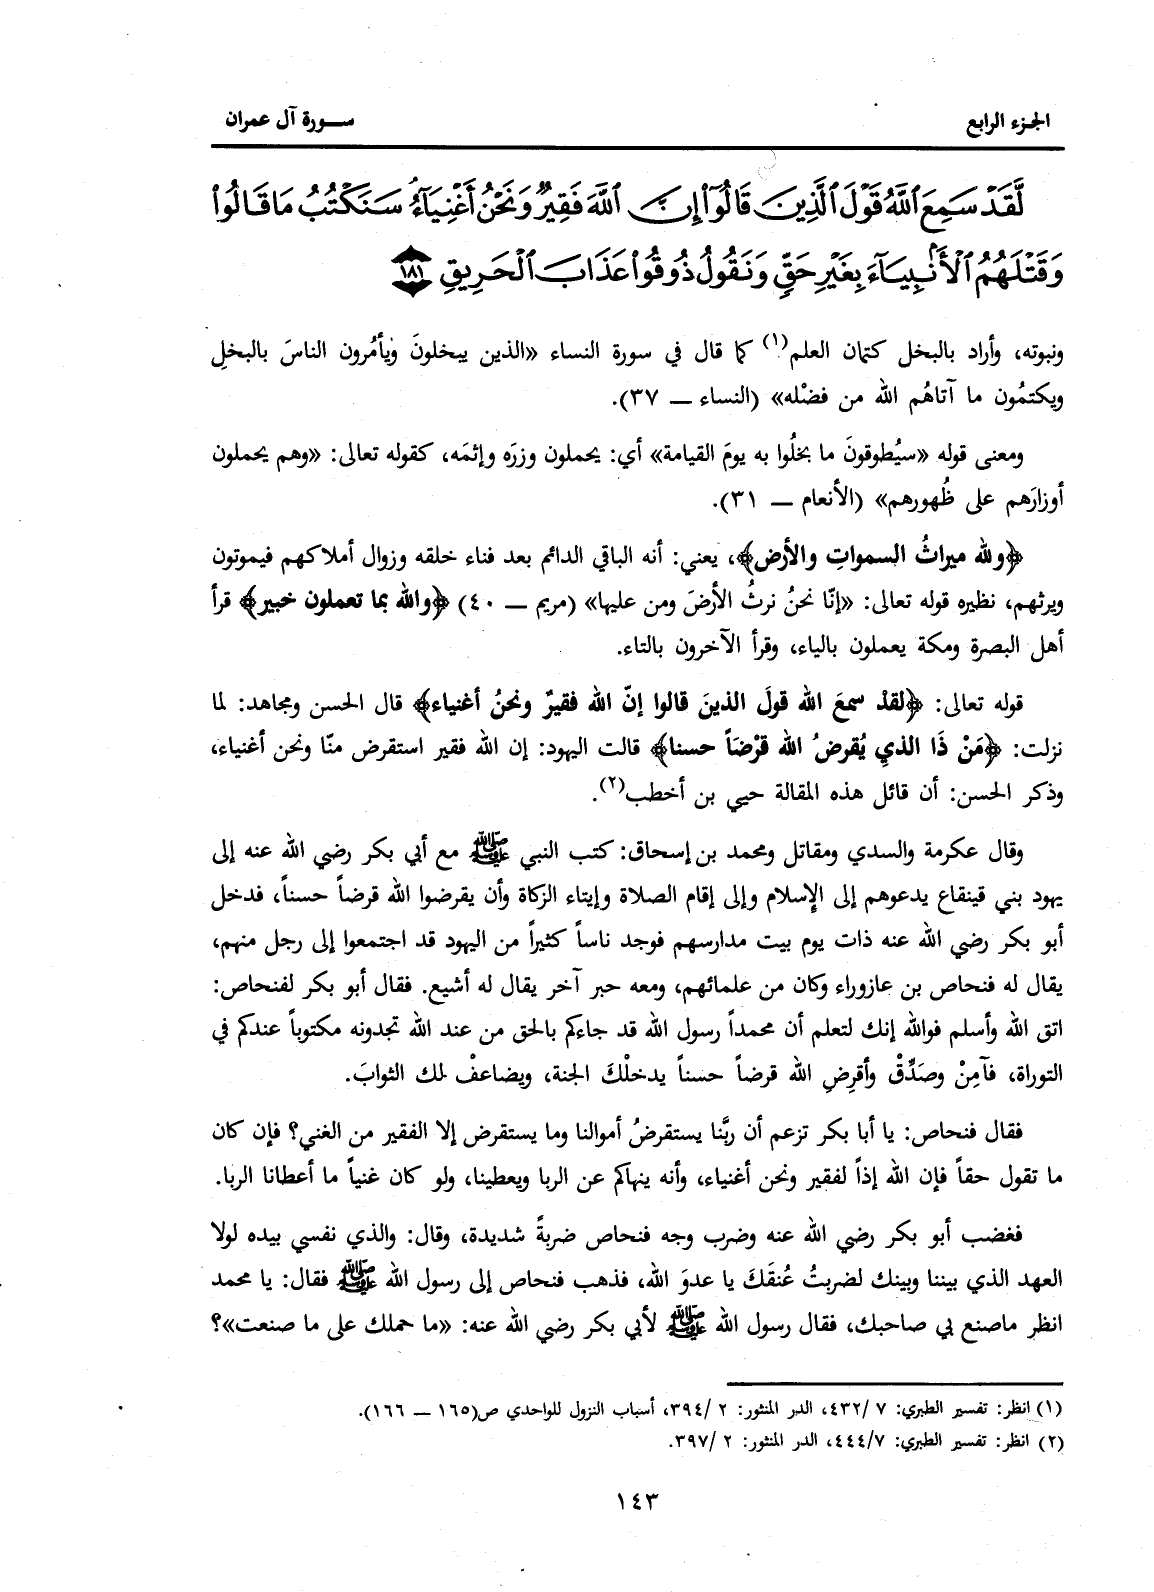 الجزء الرابع
سورة آل عمران
لَّقَدْ سَمِعَ ٱللَّهُ قَوْلَ ٱلَّذِينَ قَالُوٓا۟ إِنَّ ٱللَّهَ فَقِيرٌ وَنَحْنُ أَغْنِيَآءُ سَنَكْتُبُ مَا قَالُوا۟
وَقَتْلَهُمُ ٱلْأَنۢبِيَآءَ بِغَيْرِ حَقٍّ وَنَقُولُ ذُوقُوا۟ عَذَابَ ٱلْحَرِيقِ ١٨١
ونبوته، وأراد بالبخل كتمان العلم(١) كما قال في سورة النساء «الذين يبخلونَ ويأمُرون الناسَ بالبخلِ
ويكتمُون ما آتاهُم الله من فضْله» (النساء ــ ٣٧).
ومعنى قوله «سيُطوقونَ ما بخلُوا به يومَ القيامة» أي: يحملون وزرَه وإثمَه، كقوله تعالى: «وهم يحملون
أوزارَهم على ظُهورهم» (الأنعام ــ ٣١).
﴿ولله ميراثُ السمواتِ والأرض﴾، يعني: أنه الباقي الدائم بعد فناء خلقه وزوال أملاكهم فيموتون
ويرثهم، نظيره قوله تعالى: «إنّا نحنُ نرثُ الأرضَ ومن عليها» (مريم ــ ٤٠) ﴿والله بما تعملون خبير﴾ قرأ
أهل البصرة ومكة يعملون بالياء، وقرأ الآخرون بالتاء.
قوله تعالى: ﴿لقدْ سمعَ الله قولَ الذينَ قالوا إنّ الله فقيرٌ ونحنُ أغنياء﴾ قال الحسن ومجاهد: لما
نزلت: ﴿مَنْ ذَا الذي يُقرضُ الله قرْضَاً حسنا﴾ قالت اليهود: إن الله فقير استقرض منّا ونحن أغنياء،
وذكر الحسن: أن قائل هذه المقالة حيي بن أخطب(٢).
وقال عكرمة والسدي ومقاتل ومحمد بن إسحاق: كتب النبي ﷺ مع أبي بكر رضي الله عنه إلى
يهود بني قينقاع يدعوهم إلى الإسلام وإلى إقام الصلاة وإيتاء الزكاة وأن يقرضوا الله قرضاً حسناً، فدخل
أبو بكر رضي الله عنه ذات يوم بيت مدارسهم فوجد ناساً كثيراً من اليهود قد اجتمعوا إلى رجل منهم،
يقال له فنحاص بن عازوراء وكان من علمائهم، ومعه حبر آخر يقال له أشيع. فقال أبو بكر لفنحاص:
اتق الله وأسلم فوالله إنك لتعلم أن محمداً رسول الله قد جاءكم بالحق من عند الله تجدونه مكتوباً عندكم في
التوراة، فآمِنْ وصَدِّقْ وأقرِضِ الله قرضاً حسناً يدخلْكَ الجنة، ويضاعفْ لك الثوابَ.
فقال فنحاص: يا أبا بكر تزعم أن ربَّنا يستقرضُ أموالنا وما يستقرض إلا الفقير من الغني؟ فإن كان
ما تقول حقاً فإن الله إذاً لفقير ونحن أغنياء، وأنه ينهاكم عن الربا ويعطينا، ولو كان غنياً ما أعطانا الربا.
فغضب أبو بكر رضي الله عنه وضرب وجه فنحاص ضربةً شديدة، وقال: والذي نفسي بيده لولا
العهد الذي بيننا وبينك لضربتُ عُنقَكَ يا عدوَ الله، فذهب فنحاص إلى رسول الله ﷺ فقال: يا محمد
انظر ماصنع بي صاحبك، فقال رسول الله ﷺ لأبي بكر رضي الله عنه: «ما حملك على ما صنعت»؟
(١) انظر: تفسير الطبري: ٧ /٤٣٢، الدر المنثور: ٢ /٣٩٤، أسباب النزول للواحدي ص(١٦٥ ــ ١٦٦).
(٢) انظر: تفسير الطبري: ٤٤٤/٧، الدر المنثور: ٢ /٣٩٧.
١٤٣